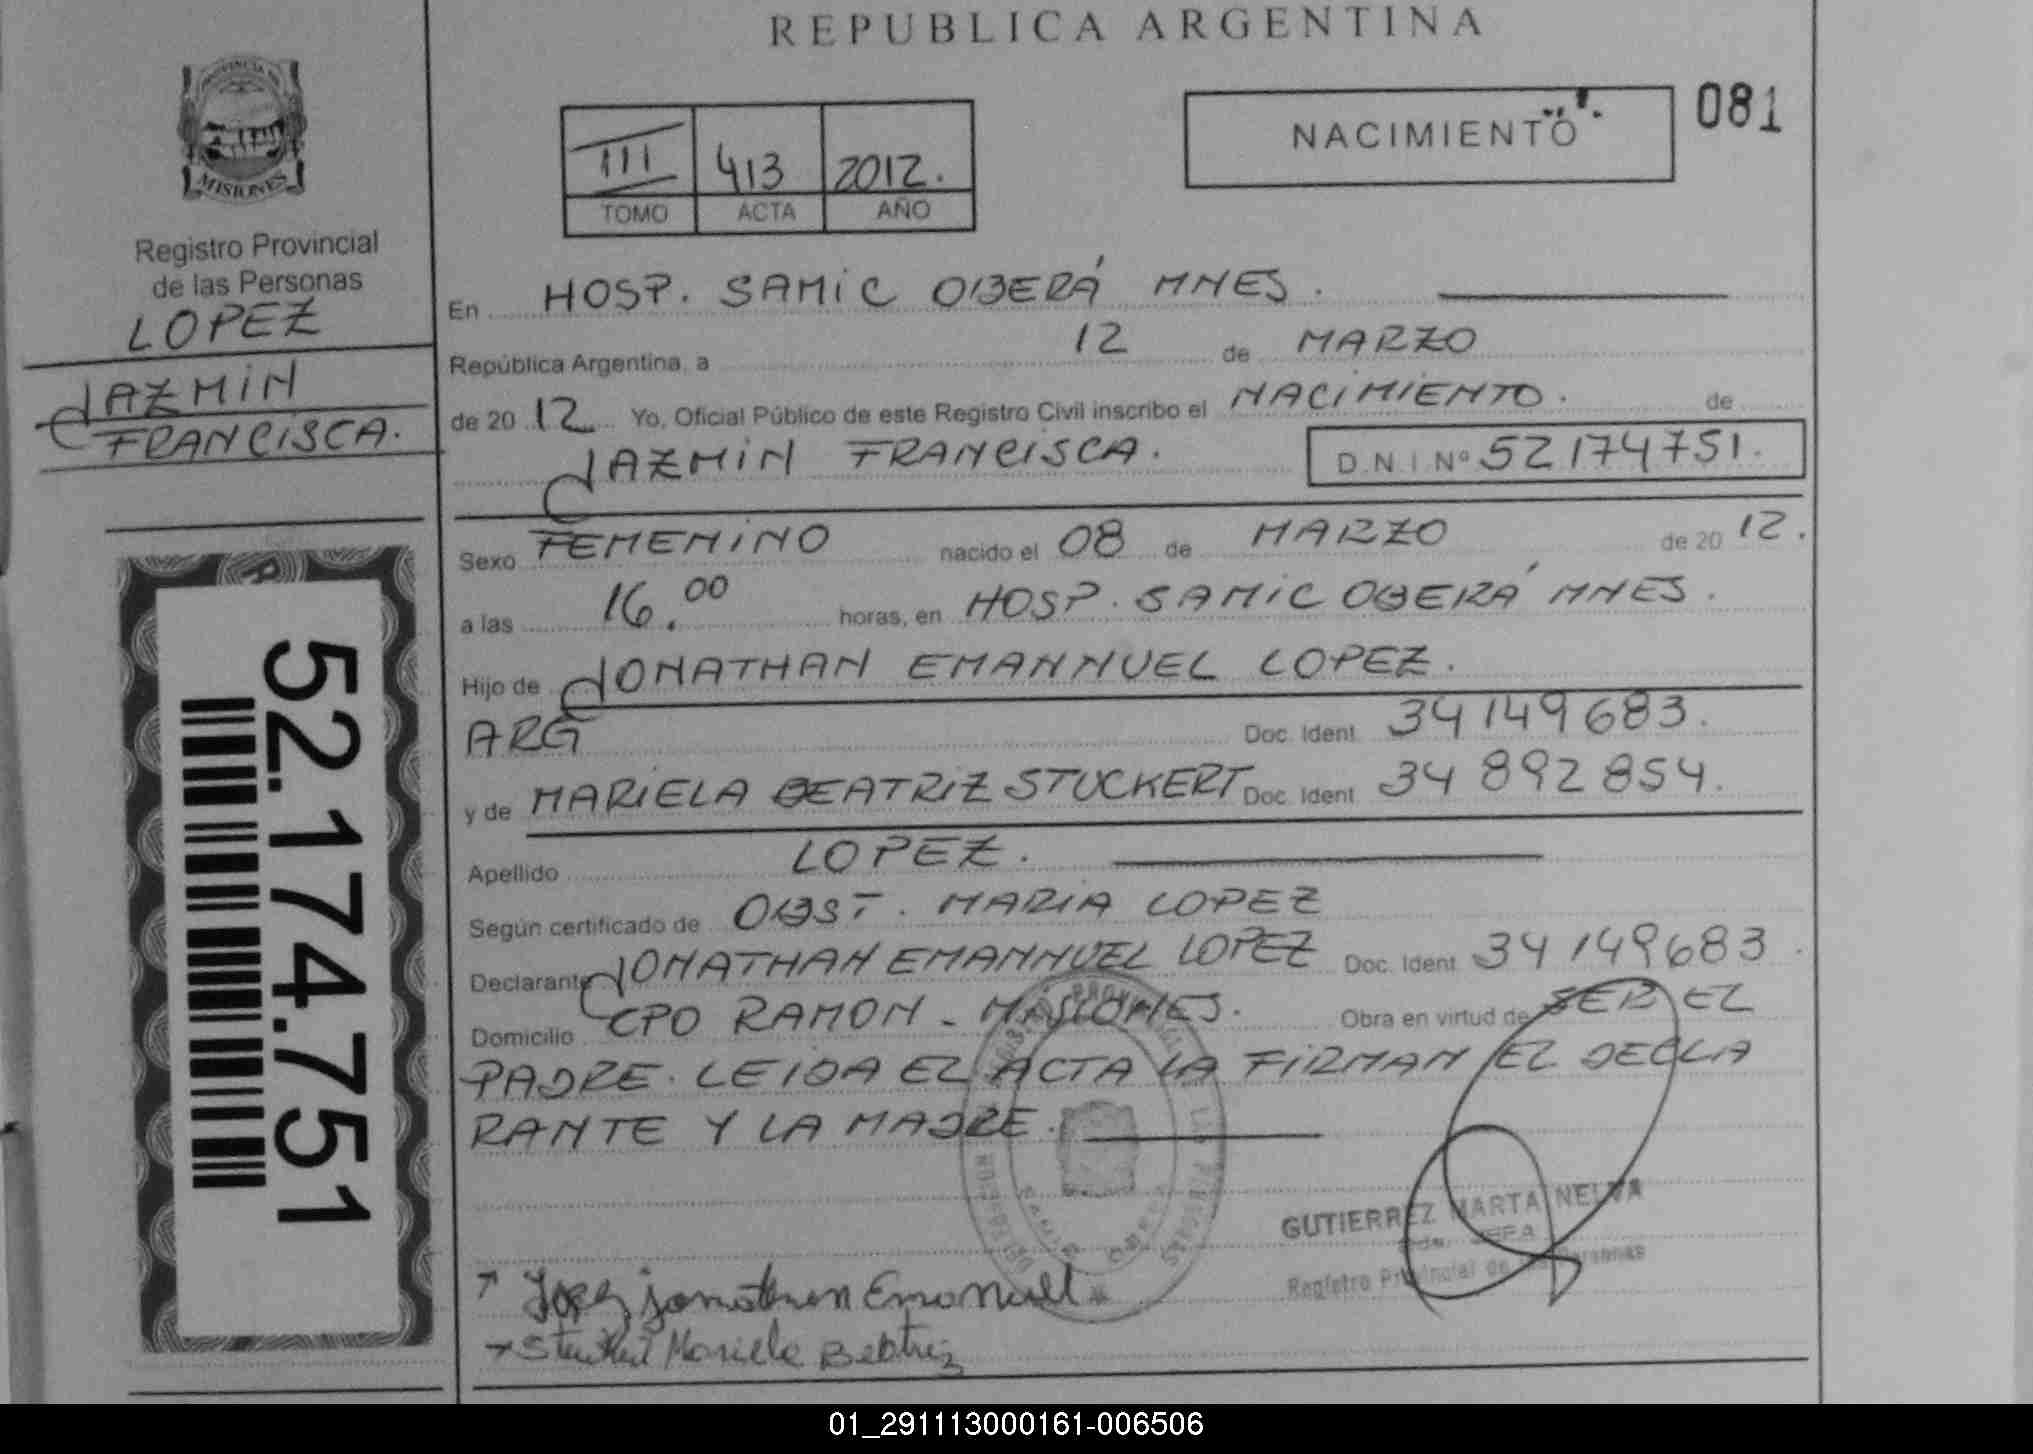 REPUBLICA ARGENTINA
PROVINCIA DE
MISIONES
Registro Provincial
de las Personas
LOPEZ
JAZMIN
FRANCISCA.
52.174.751
III 413 2012.
TOMO ACTA AÑO
NACIMIENTO
081
En HOSP. SAMIC OBERÁ MNES.
República Argentina, a 12 de MARZO
de 20 12 Yo, Oficial Público de este Registro Civil inscribo el NACIMIENTO. de
JAZMIN FRANCISCA. D.N.I Nº 52174751.
Sexo FEMENINO nacido el 08 de MARZO de 20 12.
a las 16.00 horas, en HOSP. SAMIC OBERÁ MNES.
Hijo de JONATHAN EMANNUEL LOPEZ.
ARG Doc. Ident. 34149683.
y de MARIELA BEATRIZ STUCKERT Doc. Ident. 34 892 854.
Apellido LOPEZ.
Según certificado de OBST. MARIA LOPEZ
Declarante JONATHAN EMANNUEL LOPEZ Doc. Ident. 34149683.
Domicilio CPO RAMON - MISIONES. Obra en virtud de SER EL
PADRE. LEIDA EL ACTA LA FIRMAN EL DECLA
RANTE Y LA MADRE.
GUTIERREZ MARTA NELVA
JEFA
Registro Provincial de las Personas
Lopez Jonathan Emanuel
Stuckert Mariela Beatriz
01_291113000161-006506